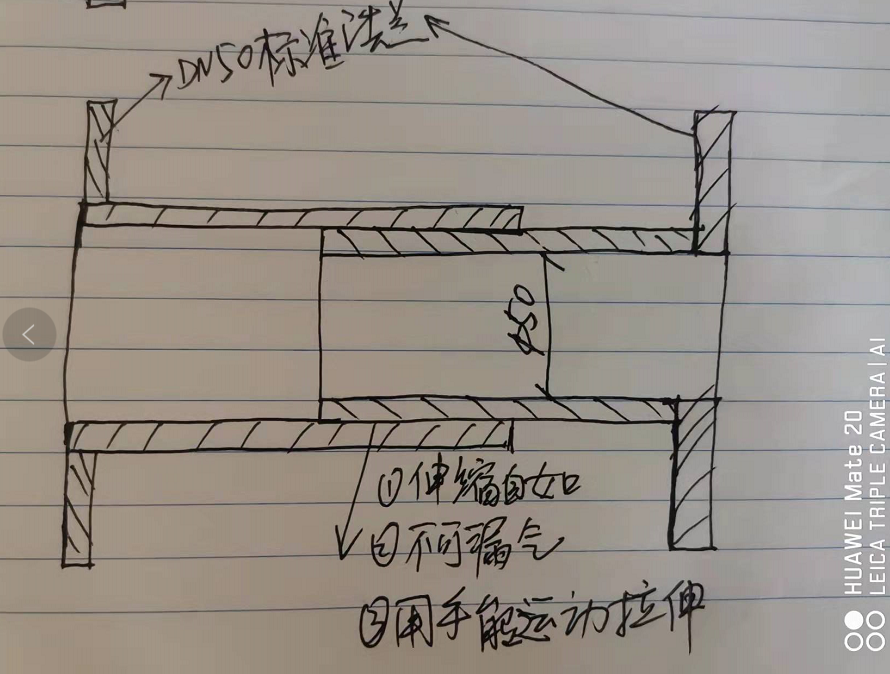 DN50标准法兰
φ50
①伸缩自如
②不可漏气
③用手能运动拉伸
HUAWEI Mate 20
LEICA TRIPLE CAMERA | AI